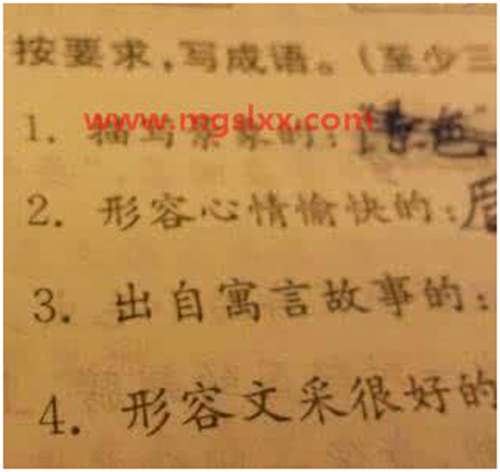 按要求,写成语。(至少三
www.mgslxx.com
1. 描写景象的:
2. 形容心情愉快的:后
3. 出自寓言故事的:
4. 形容文采很好的